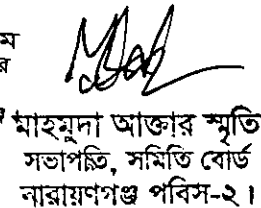 ম
র
মাহমুদা আক্তার স্মৃতি
সভাপতি, সমিতি বোর্ড
নারায়ণগঞ্জ পবিস-২।